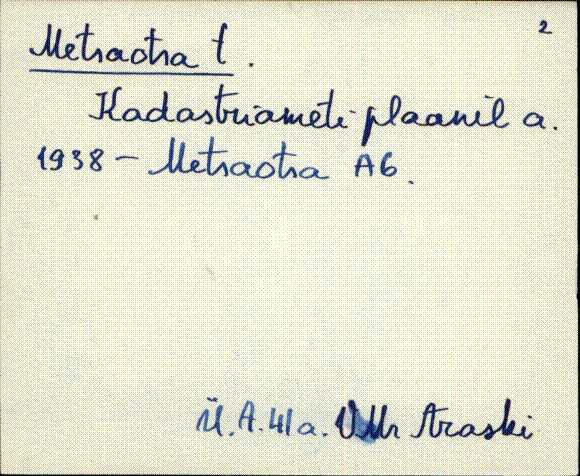 2
Metsaotsa t.
Kadastriameti plaanil a.
1938 – Metsaotsa A6.
Ü.A. 41a. Araski